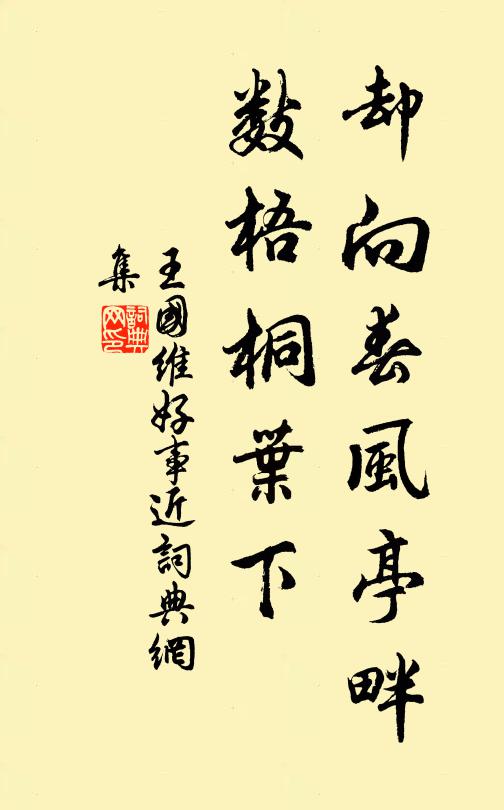 却向春風亭畔
數梧桐葉下
王國維好事近詞典網
集
詞典
网印